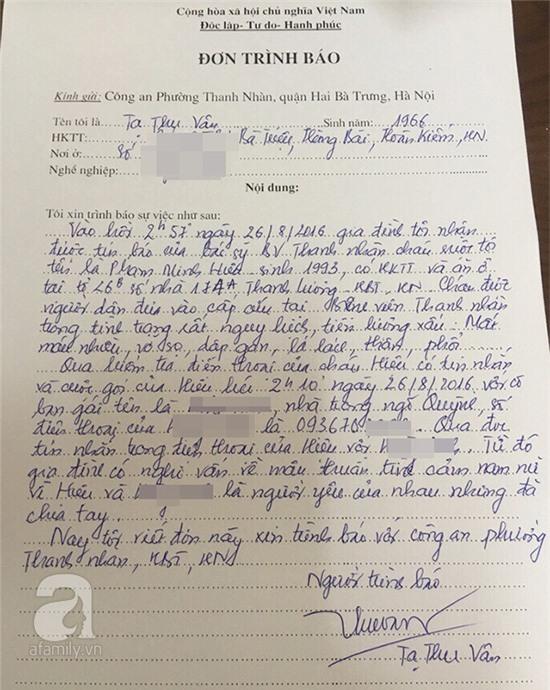 Cộng hòa xã hội chủ nghĩa Việt Nam
Độc lập- Tự do- Hạnh phúc
ĐƠN TRÌNH BÁO
Kính gửi: Công an Phường Thanh Nhàn, quận Hai Bà Trưng, Hà Nội
Tên tôi là Tạ Thu Vân Sinh năm: 1966
HKTT: Bà Triệu, Hàng Bài, Hoàn Kiếm, HN
Nơi ở: số
Nghề nghiệp:
Nội dung:
Tôi xin trình báo sự việc như sau:
Vào hồi 2h57 ngày 26/8/2016 gia đình tôi nhận
được tin báo của bác sỹ BV Thanh nhàn cháu ruột tôi
tên là Phạm Minh Hiếu sinh 1993, có HKTT và ăn ở
tại số nhà Thanh lương HBT, HN Cháu được
người dân đưa vào cấp cứu tại Bệnh viện Thanh nhàn
trong tình trạng rất nguy kịch, tiên lượng xấu: Mất
máu nhiều, vỡ sọ, dập gan, lá lách, thận, phổi
Qua kiểm tra điện thoại của cháu Hiếu có tin nhắn
và cuộc gọi của Hiếu lúc 2h10 ngày 26/8/2016 với cô
bạn gái tên là nhà trong ngõ Quỳnh, số
điện thoại của H là 093670 Qua đọc
tin nhắn trong điện thoại của Hiếu với H Từ đó
gia đình có nghi vấn về mâu thuẫn tình cảm nam nữ
vì Hiếu và là người yêu của nhau nhưng đã
chia tay.
Nay tôi viết đơn này xin trình báo với công an phường
Thanh nhàn, HBT, HN
Người trình báo
Tạ Thu Vân
a
afamily.vn